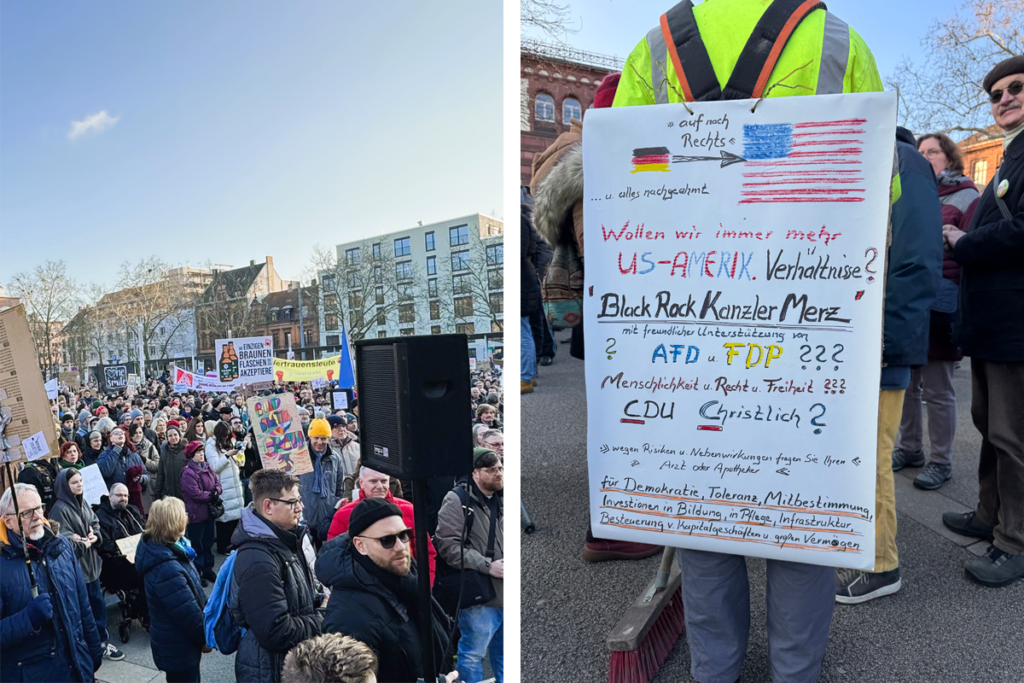 DIE
EINZIGEN
BRAUNEN
FLASCHEN
AKZEPTIERE
Vertrauensleute
» auf nach
Rechts «
... u. alles nachgeahmt
Wollen wir immer mehr
US-AMERIK. Verhältnise?
"Black Rock Kanzler Merz"
mit freundlicher Unterstützung von
? AFD u. FDP ???
Menschlichkeit u. Recht u. Freiheit ???
CDU Christlich ?
» wegen Risiken u. Nebenwirkungen fragen Sie Ihren «
» Arzt oder Apotheker «
für Demokratie, Toleranz, Mitbestimmung,
Investionen in Bildung, in Pflege, Infrastruktur,
Besteuerung v. Kapitalgeschäften u. großen Vermögen